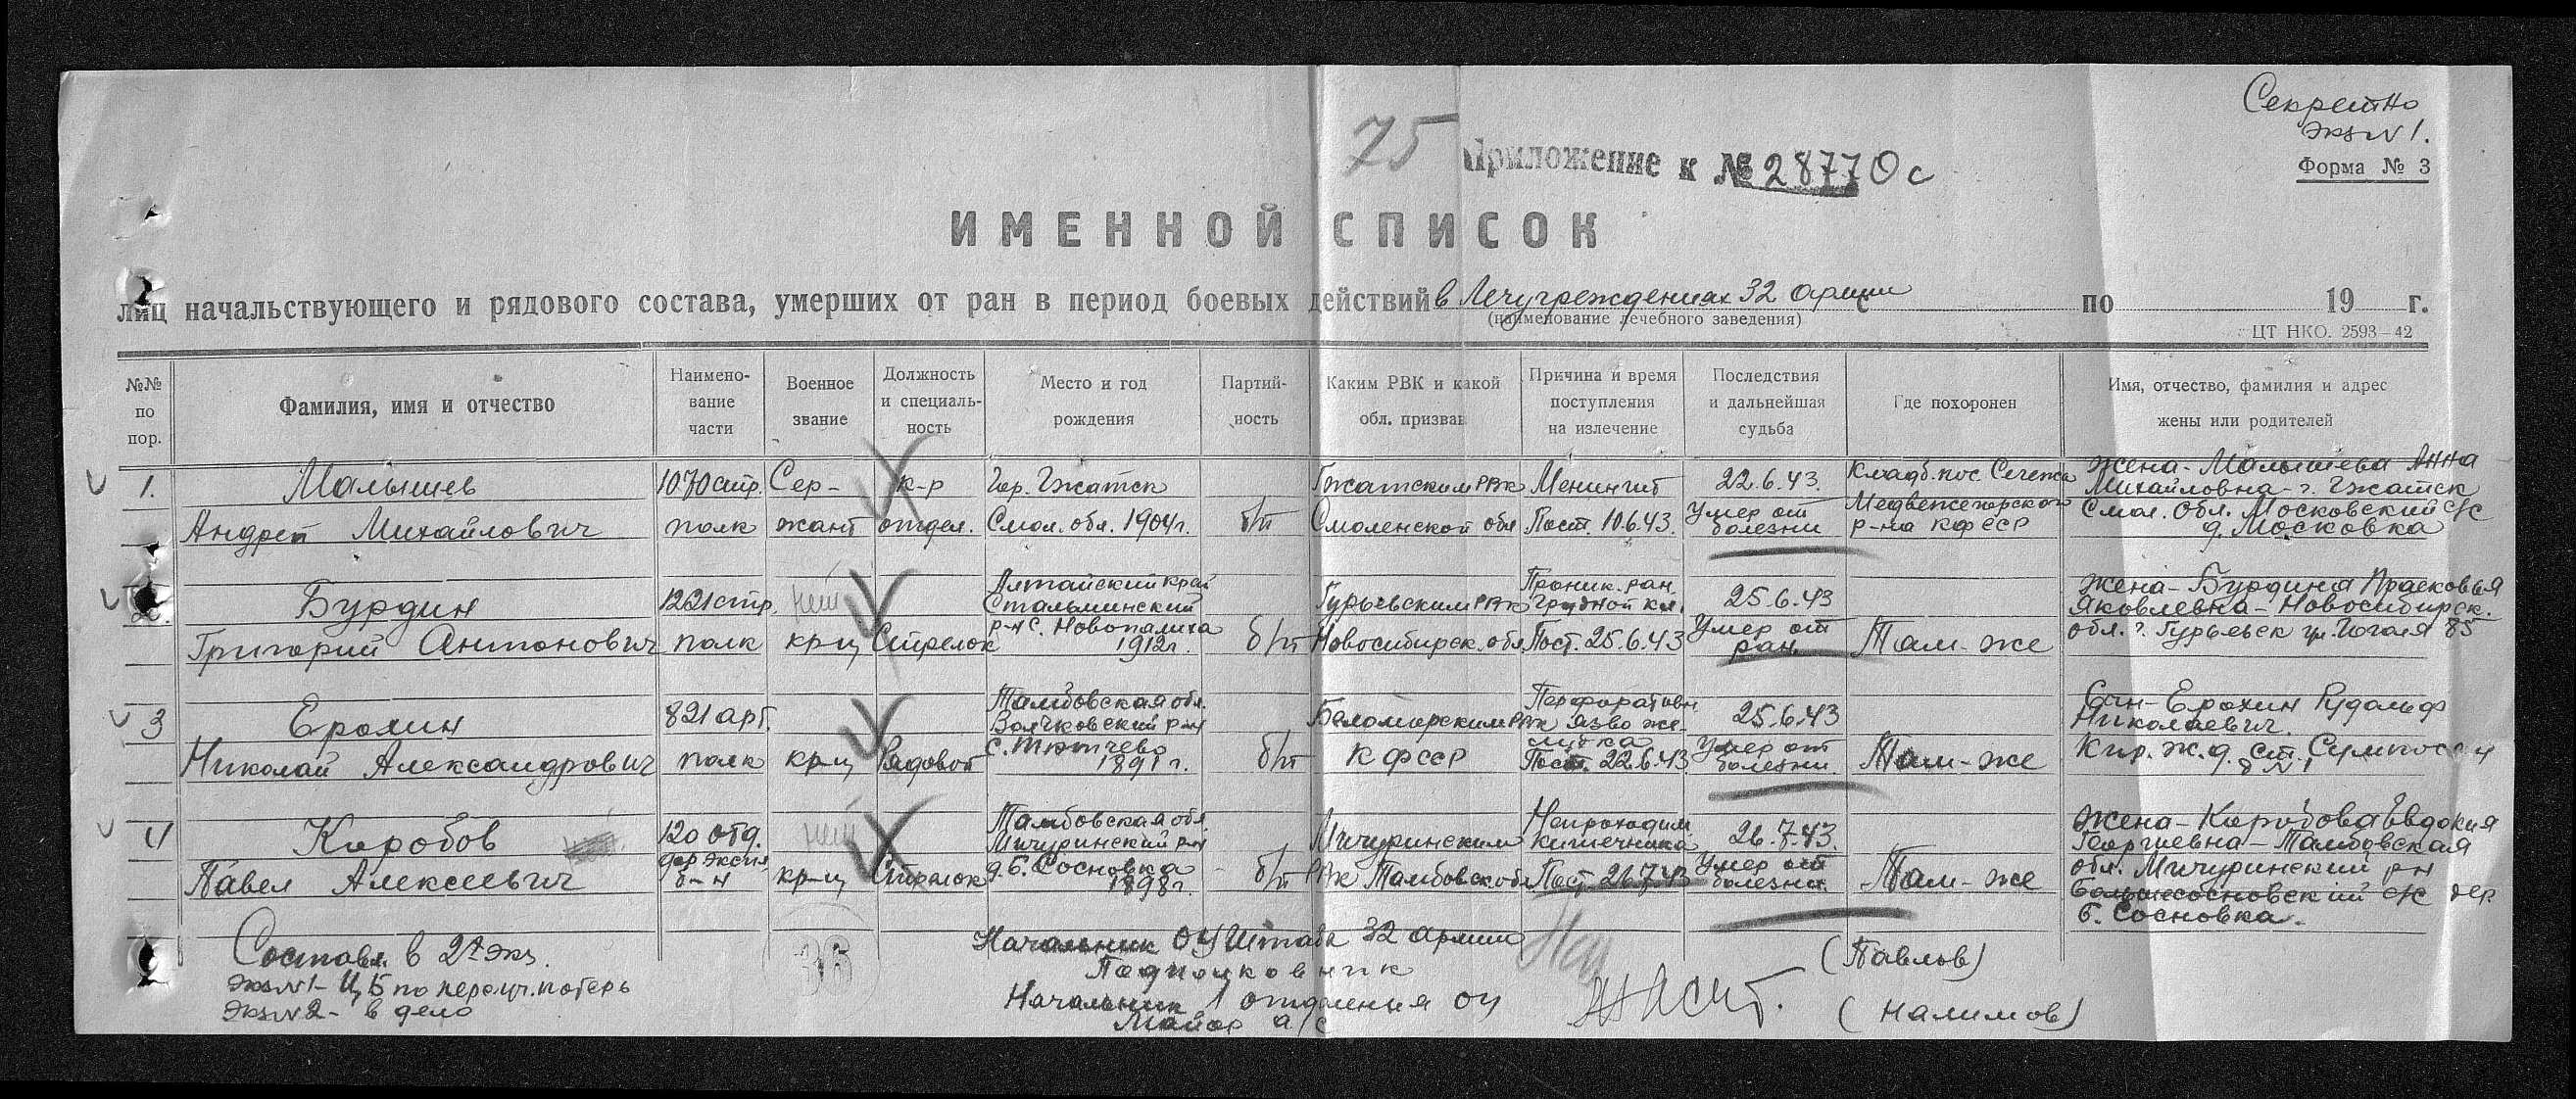 Секретно
экз N 1.
Форма № 3
75
Приложение к № 28770с
ИМЕННОЙ СПИСОК
лиц начальствующего и рядового состава, умерших от ран в период боевых действий в Лечучреждениях 32 армии с по 19 г.
(наименование лечебного заведения)
ЦТ НКО. 2593—42
№№ по пор.
Фамилия, имя и отчество
Наименование части
Военное звание
Должность и специальность
Место и год рождения
Партийность
Каким РВК и какой обл. призван
Причина и время поступления на излечение
Последствия и дальнейшая судьба
Где похоронен
Имя, отчество, фамилия и адрес жены или родителей
1.
Малышев
Андрей Михайлович
1070 стр.
полк
Сер-
жант
к-р
отдел.
Гор. Гжатск
Смол. обл. 1904г.
б/п
Гжатским РВК
Смоленской обл
Менингит
Пост. 10.6.43.
22.6.43.
Умер от
болезни
Кладб. пос. Сегежа
Медвежегорского
р-на КФССР
Жена - Малышева Анна
Михайловна - г. Гжатск
Смол. Обл. Московский с/с
д. Московка
2.
Бурдин
Григорий Антонович
1221 стр.
полк
кр-ц
Стрелок
Алтайский край
р-н с. Новопалиха
1912г.
б/п
Гурьевским РВК
Новосибирск. обл.
Проник. ран.
Грудной кл.
Пост. 25.6.43
25.6.43
Умер от
ран
Там-же
Жена - Бурдина Прасковья
Яковлевна - Новосибирск.
обл. г. Гурьевск ул. Гоголя 85
3
Ерохин
Николай Александрович
821 арт.
полк
кр-ц
Рядовой
Тамбовская обл.
с. Тютчево
1891г.
б/п
Беломорским РВК
КФССР
Перфоративн
язва же-
лудка
Пост. 22.6.43.
25.6.43
Умер от
болезни
Там-же
Сын - Ерохин Рудольф
Николаевич.
Кир. ж.д. ст. Сумпосад
д N 1
4
Коробов
Павел Алексеевич
120 отд.
дор. экспл.
б-н
кр-ц
Стрелок
Тамбовская обл.
Мичуринский р-н
д. Б. Сосновка
1898г.
б/п
Мичуринским
РВК Тамбовск обл
Непроходим.
кишечника
Пост. 21.7.43
26.7.43.
Умер от
болезни
Там-же
Жена - Коробова Евдокия
Георгиевна - Тамбовская
обл. Мичуринский р-н
Большесосновский с/с дер
Б. Сосновка.
Составл. в 2х экз.
экз N 1 - ЦБ по персуч. потерь
экз N 2 - в дело
Начальник ОУ Штаба 32 армии
Подполковник
(Павлов)
Начальник 1 отделения ОУ
Майор а/с
(Налимов)